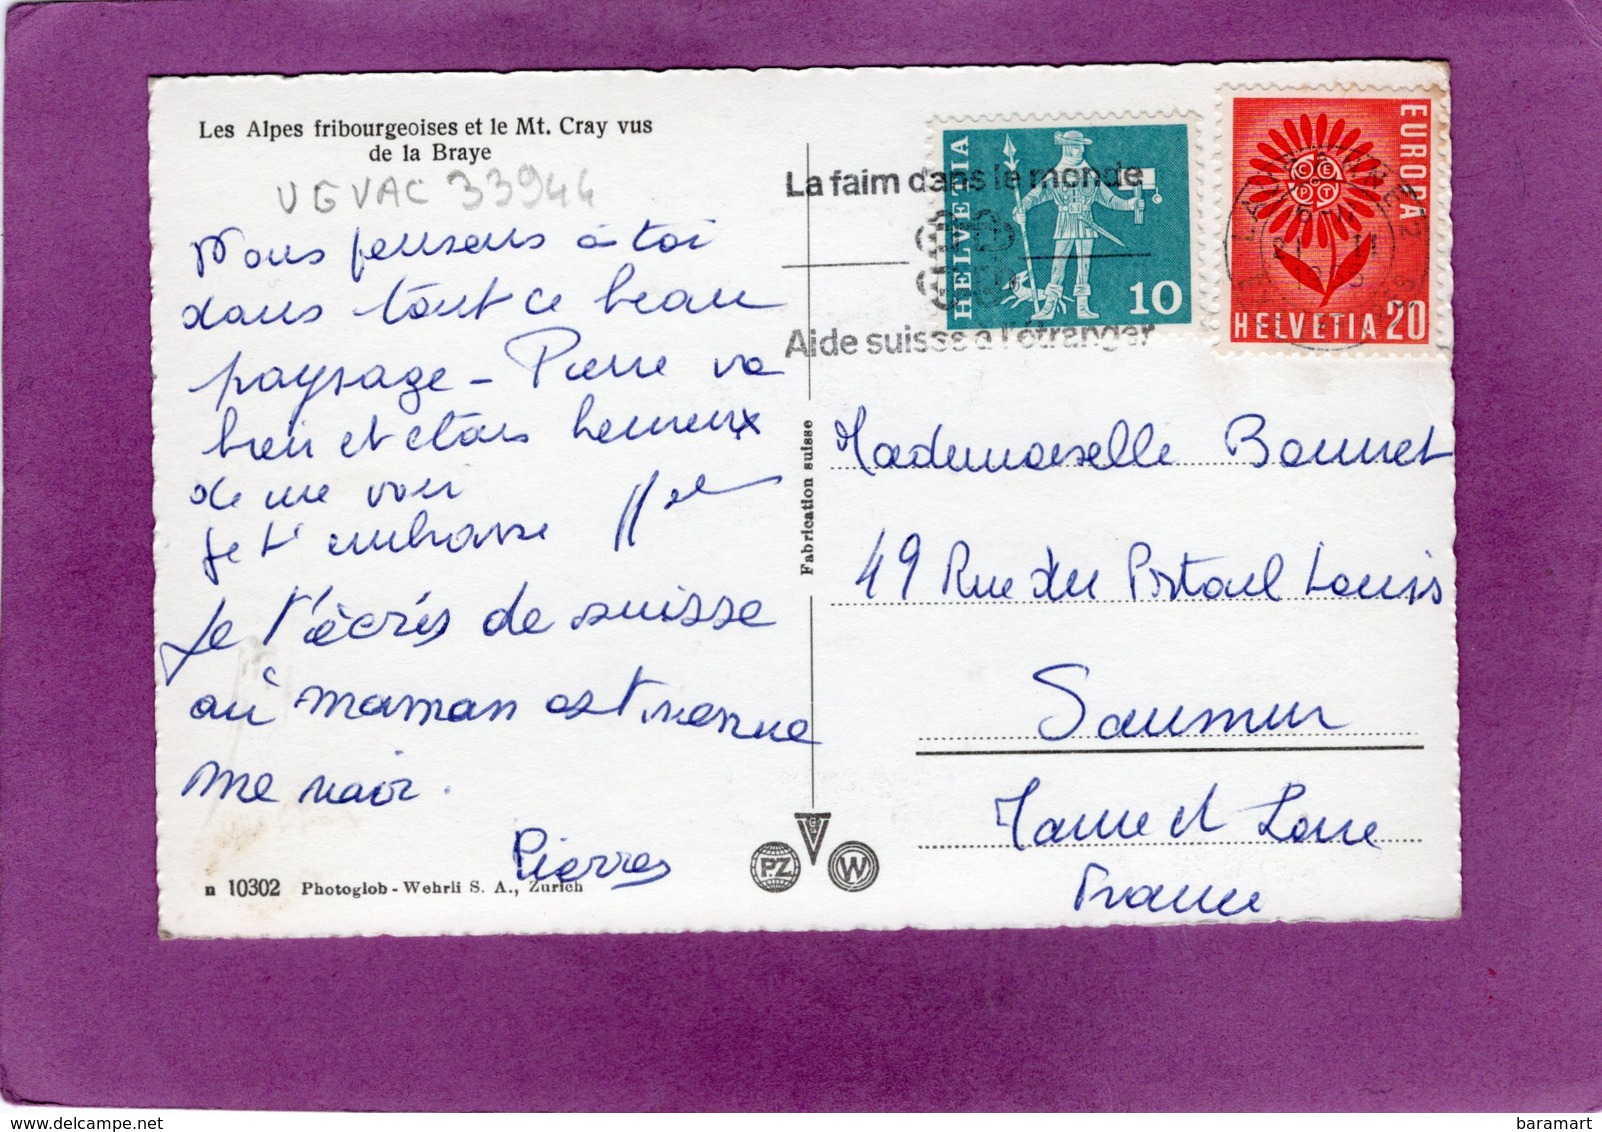 Les Alpes fribourgeoises et le Mt. Cray vus
de la Braye
UGVAC 33944
Nous pensons à toi
dans tout ce beau
paysage - Pierre va
bien et étais heureux
de me voir
Je t'embrasse
Je t'écris de suisse
où maman est venue
me voir.
Pierre
n 10302 Photoglob-Wehrli S. A., Zurich
P.Z.
W
Fabrication suisse
La faim dans le monde
Aide suisse à l'étranger
HELVETIA
10
EUROPA
CEPT
HELVETIA 20
Mademoiselle Bonnet
49 Rue du Portail Louis
Saumur
Maine et Loire
France
baramart